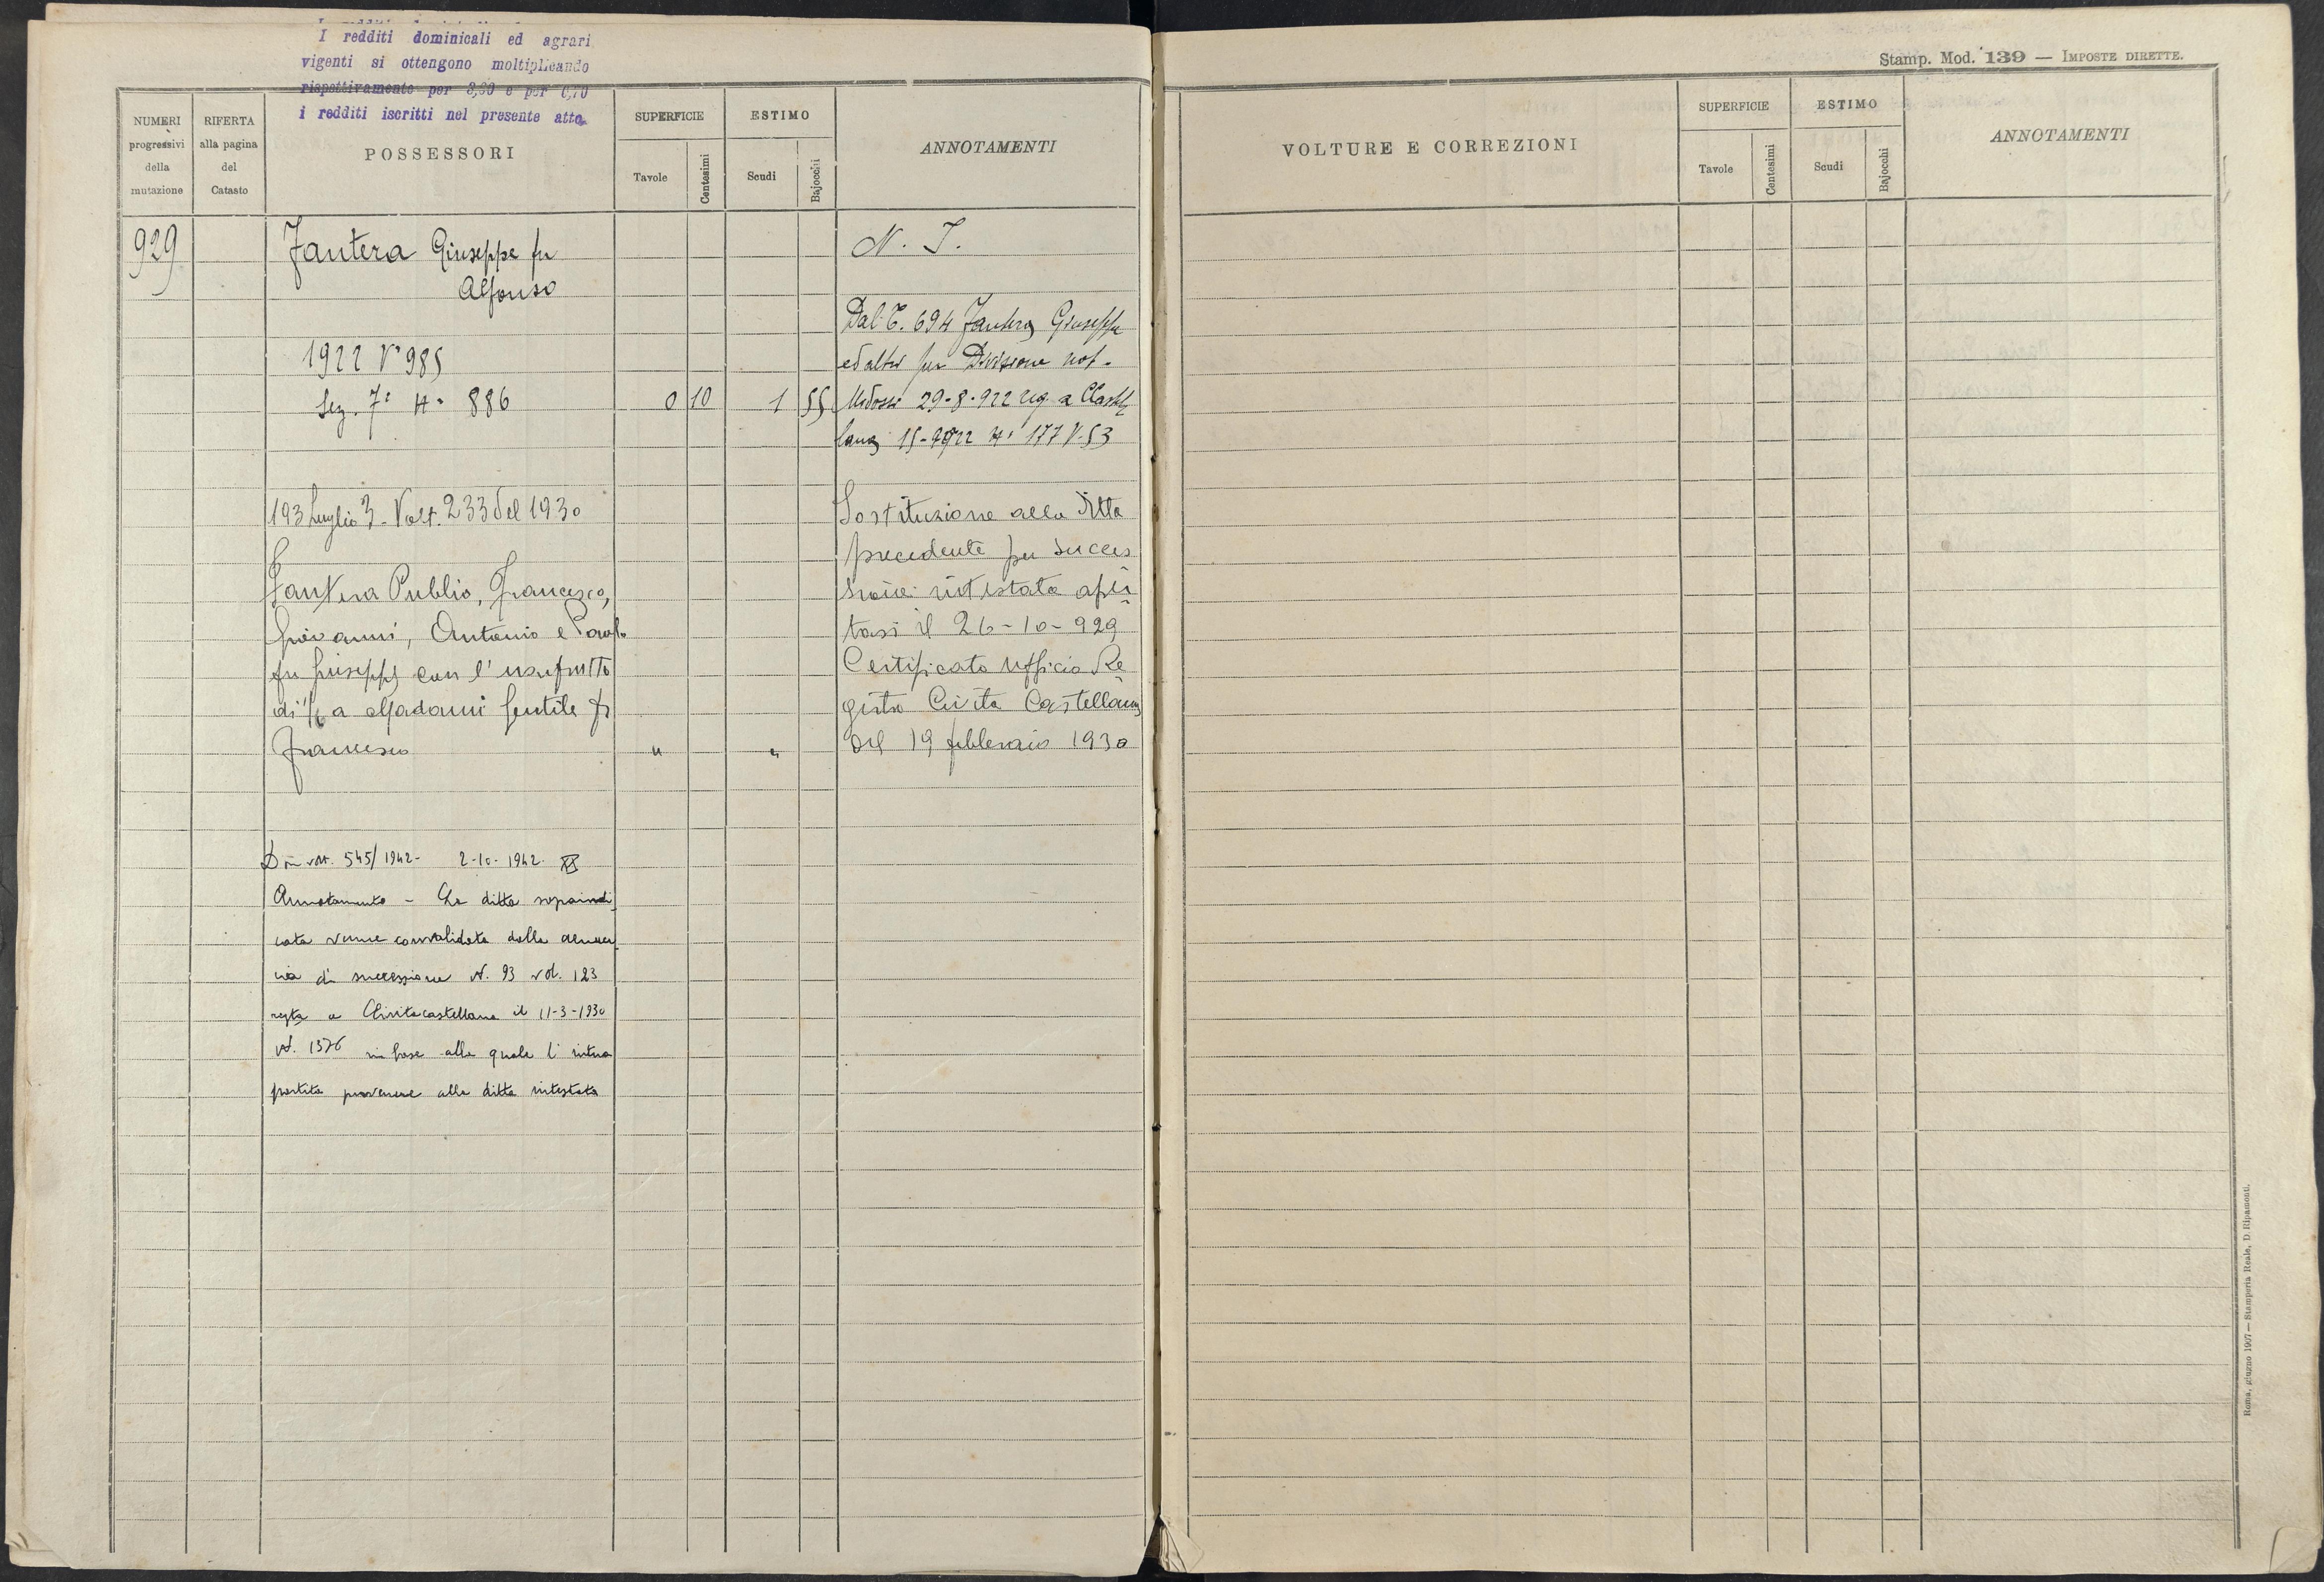 I redditi dominicali ed agrari
vigenti si ottengono moltiplicando
rispettivamente per 3,60 e per 0,70
i redditi iscritti nel presente atto
Stamp. Mod. 139 — IMPOSTE DIRETTE.
NUMERI progressivi della mutazione
RIFERTA alla pagina del Catasto
POSSESSORI
SUPERFICIE
Tavole
Centesimi
ESTIMO
Scudi
Bajocchi
ANNOTAMENTI
VOLTURE E CORREZIONI
SUPERFICIE
Tavole
Centesimi
ESTIMO
Scudi
Bajocchi
ANNOTAMENTI
929
Fantera Giuseppe fu
Alfonso
N. T.
Dal C. 694 Fantera Giuseppe
1922 V° 985
ed altri per Divisione not.
Sez. 7ª N. 886 0 10 1 55
29-8-922 reg. a
177 V. 53
193 Luglio 3 - Volt. 233 del 1930
Fantera Publio, Francesco,
Giovanni, Antonio e Paolo
fu Giuseppe con l'usufrutto
di a Madami Gentile fu
Francesco " "
Sostituzione alla ditta
precedente per succes
sione intestata aper
tasi il 26-10-929
Certificato Ufficio Re
gistro Civita Castellana
del 19 febbraio 1930
volt. 545/1942 - 2-10-1942
Annotamento - La ditta sopraindi
cata venne convalidata dalla denun
cia di successione N. 93 vol. 123
regta a Civitacastellana il 11-3-1930
N. 1376 in base alla quale l'intera
partita pervenne alla ditta intestata
Roma, giugno 1907 — Stamperia Reale, D. Ripamonti.